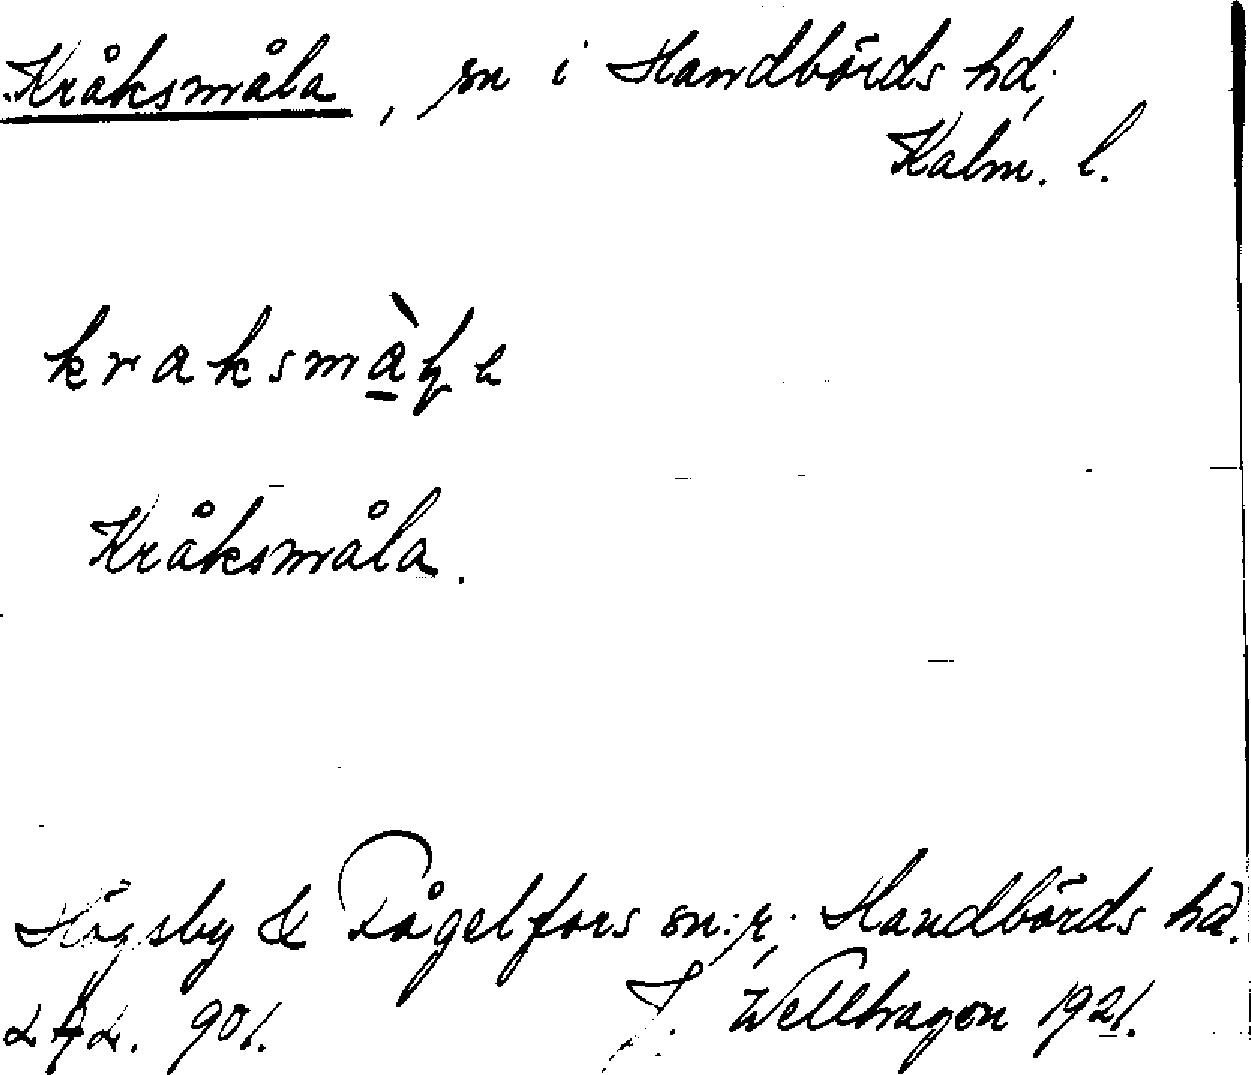 Kråksmåla, sn i Handbörds hd,
Kalm. l.
kraksmàɽa
Kråksmåla.
Högsby & Fågelfors sn:r, Handbörds hd.
901. J. Wellhagen 1921.